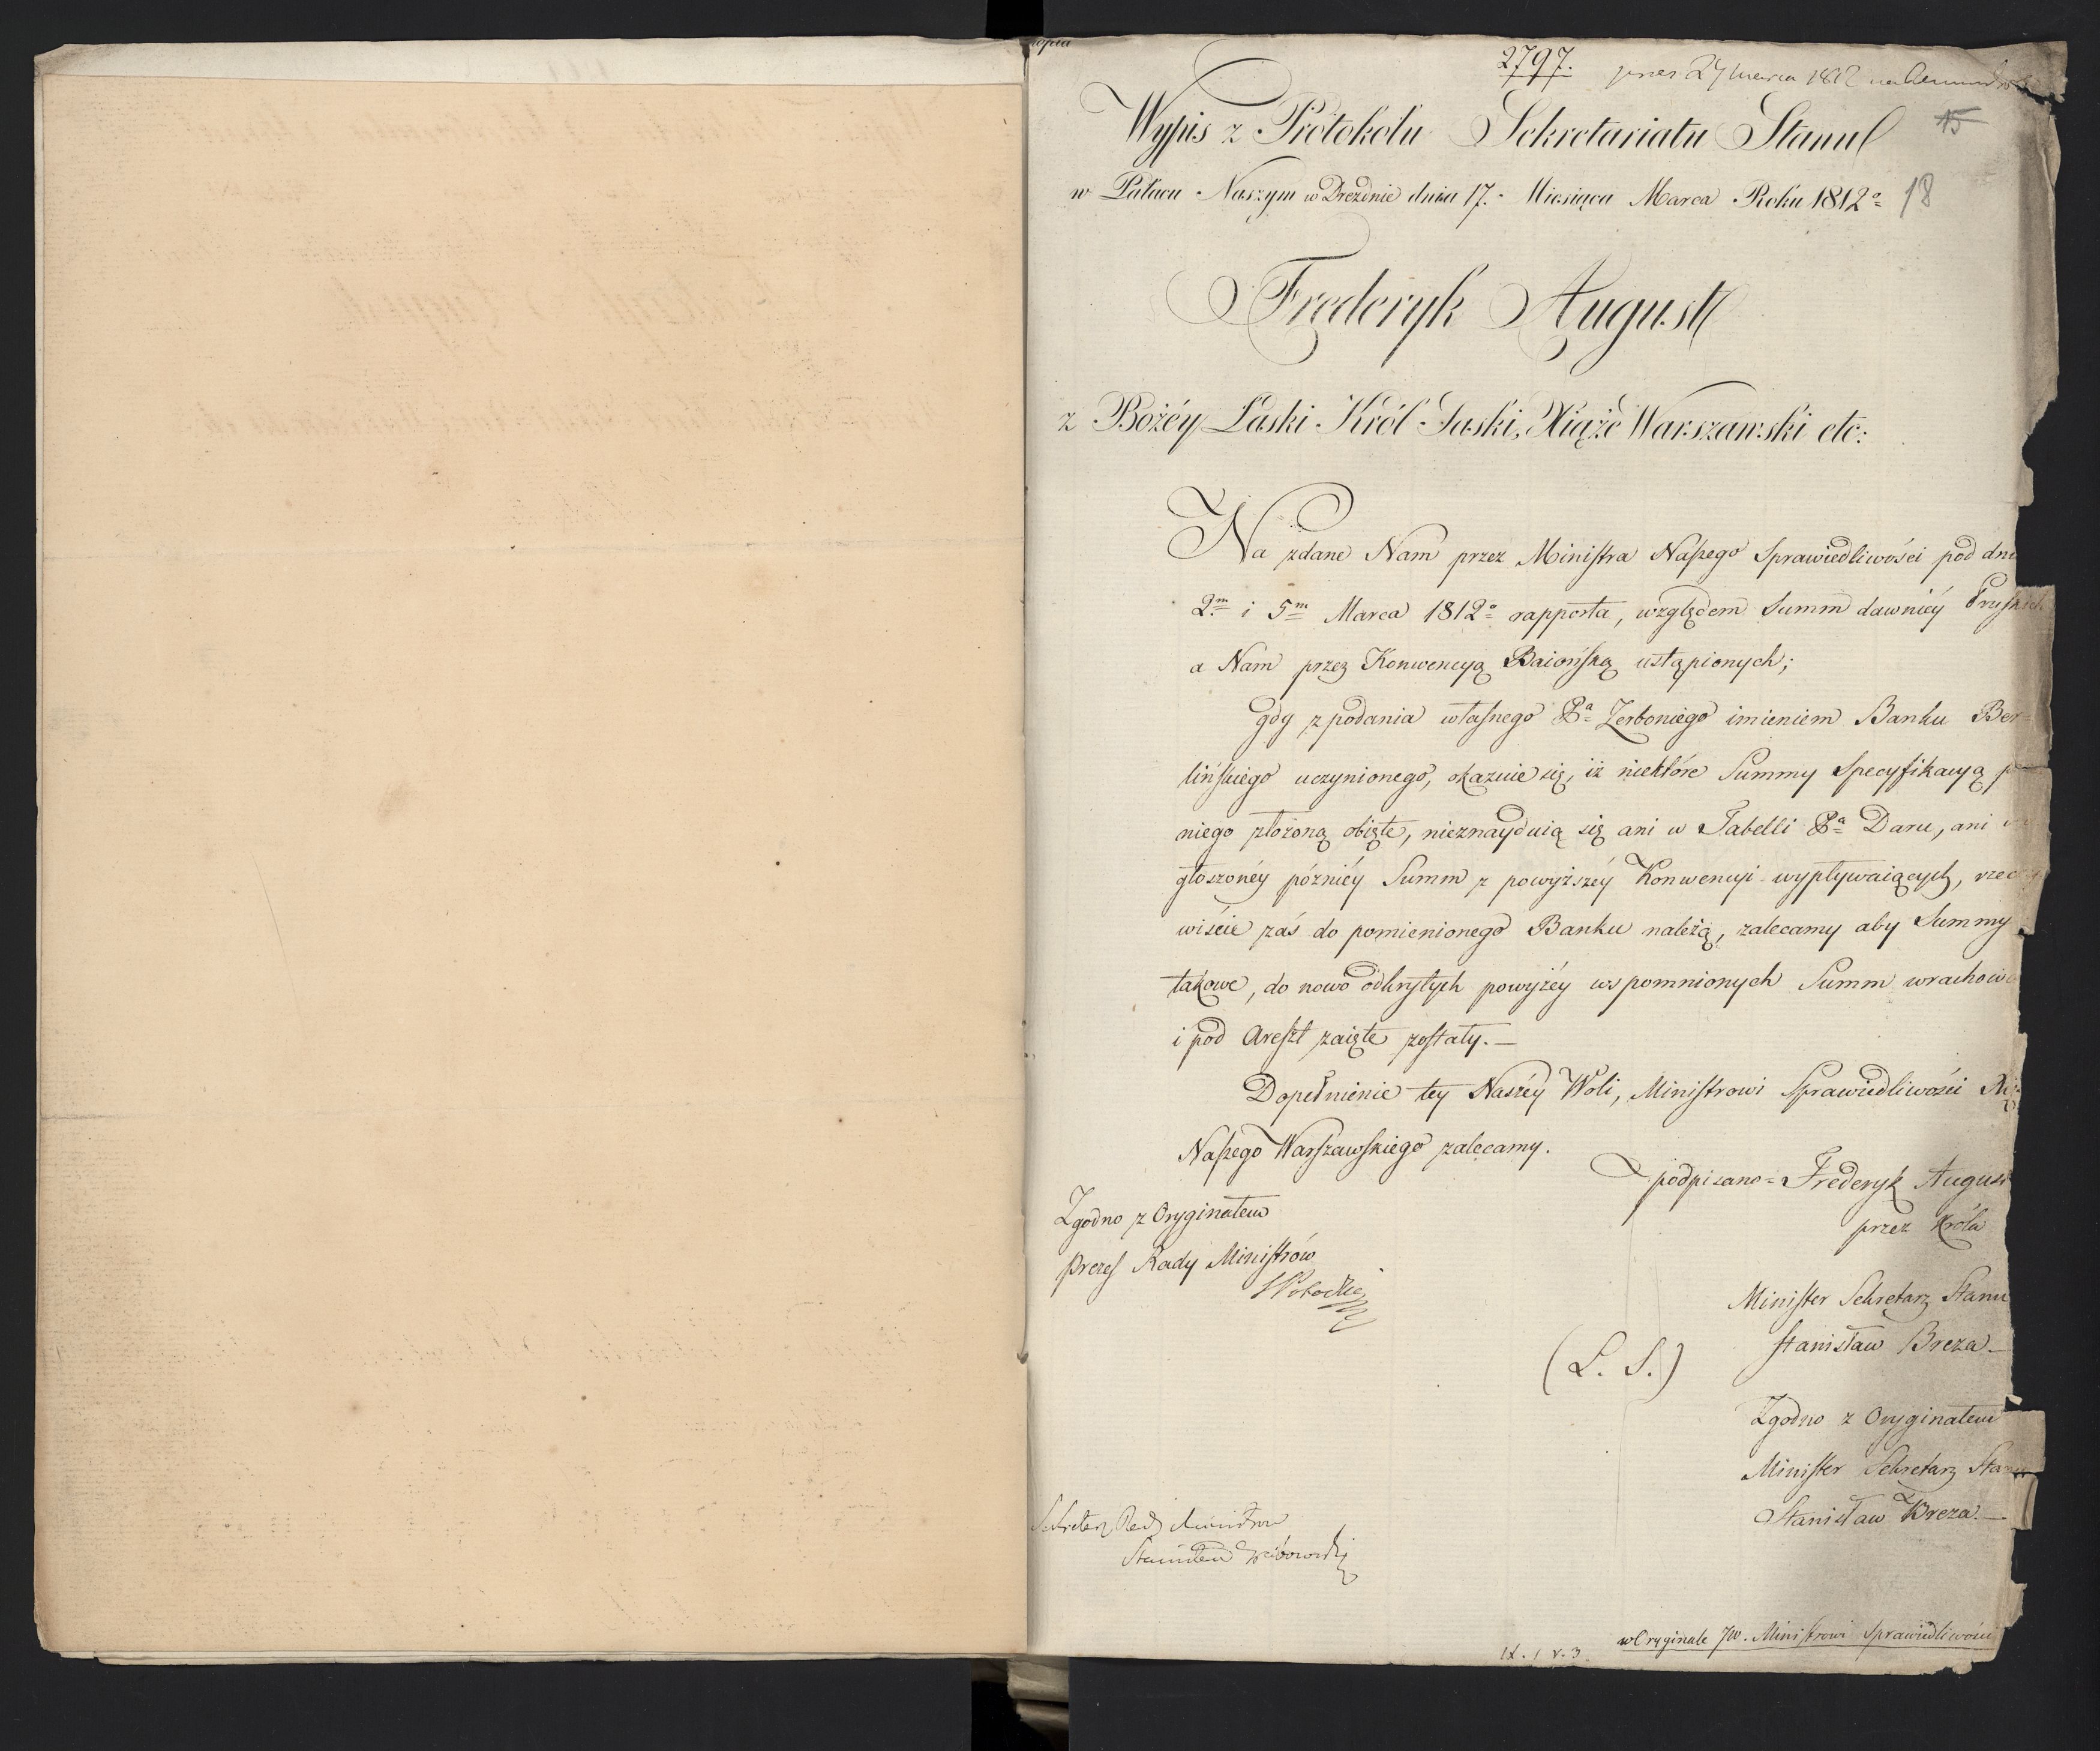 2797.
27 marca 1812
15
Wypis z Protokołu Sekretariatu Stanu
w Pałacu Naszym w Dreźnie dnia 17. Miesiąca Marca Roku 1812º
18
Frederyk August
z Bożéy Łaski Król Saski, Xiąże Warszawski etc:
Na zdane Nam przez Ministra Naszego Sprawiedliwości pod dn
2m i 5m Marca 1812º rapporta, względem Summ dawniéy Pruskich
a Nam przez Konwencyą Baiońską ustąpionych;
gdy z podania własnego Pa Zerboniego imieniem Banku Ber=
lińskiego uczynionego, okazuie się, iż niektóre Summy Specyfikacyą p
niego złożoną obięte, nieznayduią się ani w Tabelli Pa Daru, ani
głoszonéy póżniéy Summ z powyższéy Konwencyi wypływaiących, rzec
wiście zaś do pomienionego Banku należą, zalecamy aby Summy
takowe, do nowo odkrytych powyżéy wspomnionych Summ wrachow
i pod Areszt zaięte zostały.—
Dopełnienie tey Naszéy Woli, Ministrowi Sprawiedliwości
Naszego Warszawskiego zalecamy.
podpisano = Frederyk August
przez Króla
Zgodno z Oryginałem
Prezes Rady Ministrów
Potocki
Minister Sekretarz Stanu
Stanisław Breza—
(L. S.)
Zgodno z Oryginałem
Minister Sekretarz Stanu
Stanisław Breza.—
Sekretarz Rady Ministrów
w Oryginale JW. Ministrowi Sprawiedliwości